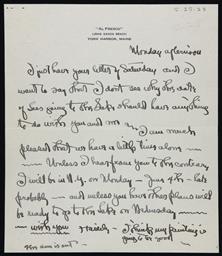 5-29-23
"AL FRESCO"
LONG SANDS BEACH
YORK HARBOR, MAINE
Monday afternoon
I just have your letter of Saturday and I
want to say that I don't see why the date
of Lees going to the Lake should have anything
to do with you and me — I am much
pleased that we have a little time alone —
Unless I hear from you to the contrary
I will be in N.Y. on Monday — June 4th – late
probably — and unless you have other plans will
be ready to go to the Lake on Wednesday
with you I think my painting is
going to be good